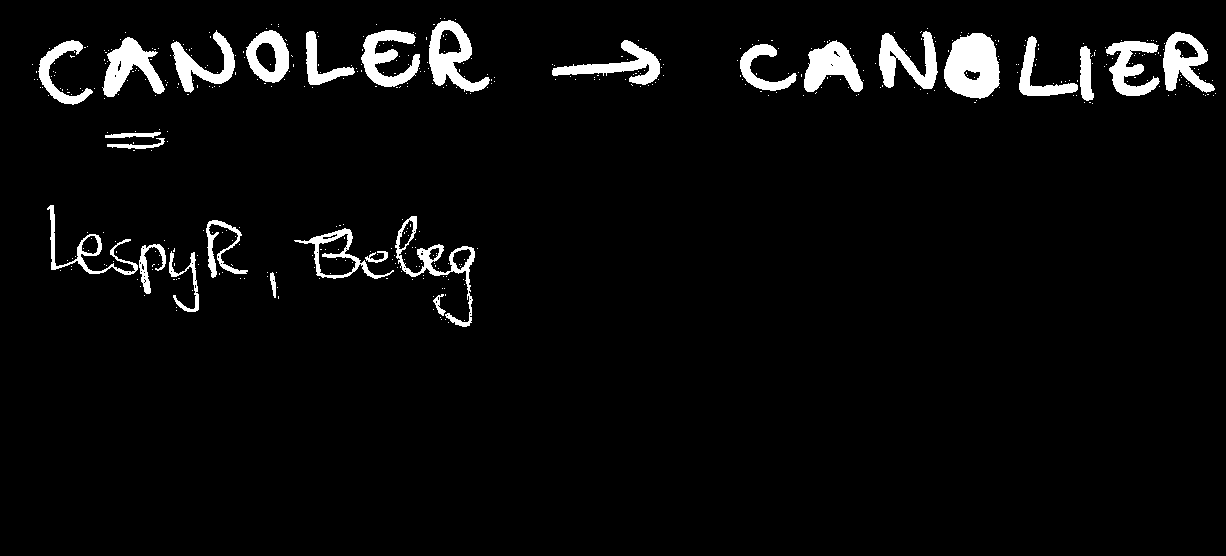 CANOLER → CANOLIER
LespyR, Bebeg